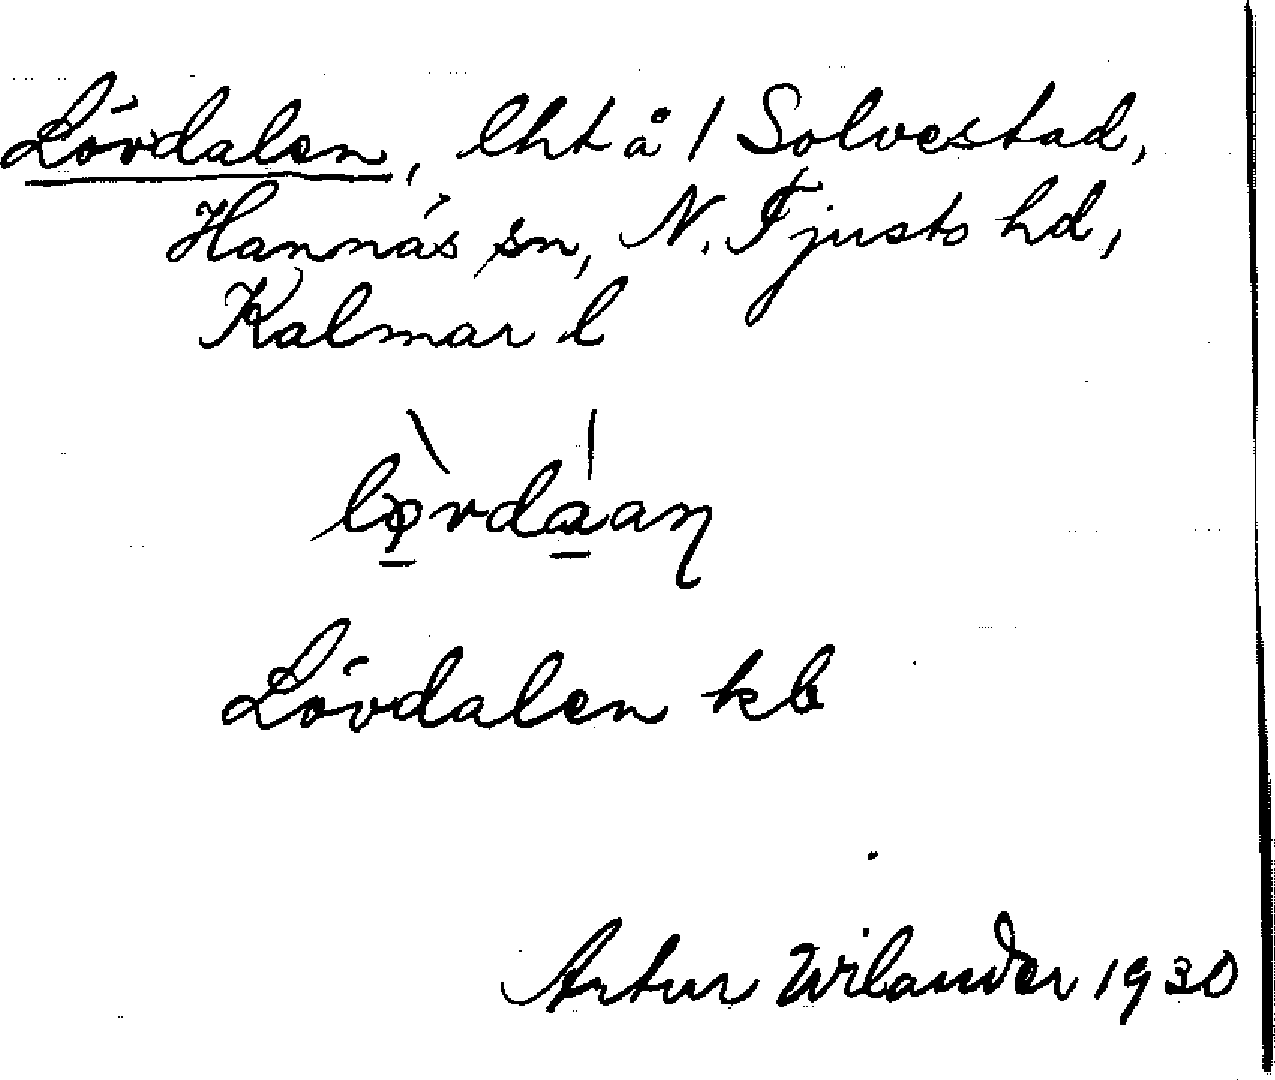 Lövdalen, lht å 1 Solvestad,
Hannäs sn, N. Tjusts hd,
Kalmar l
Lövdalen kb
Artur Wilander 1930